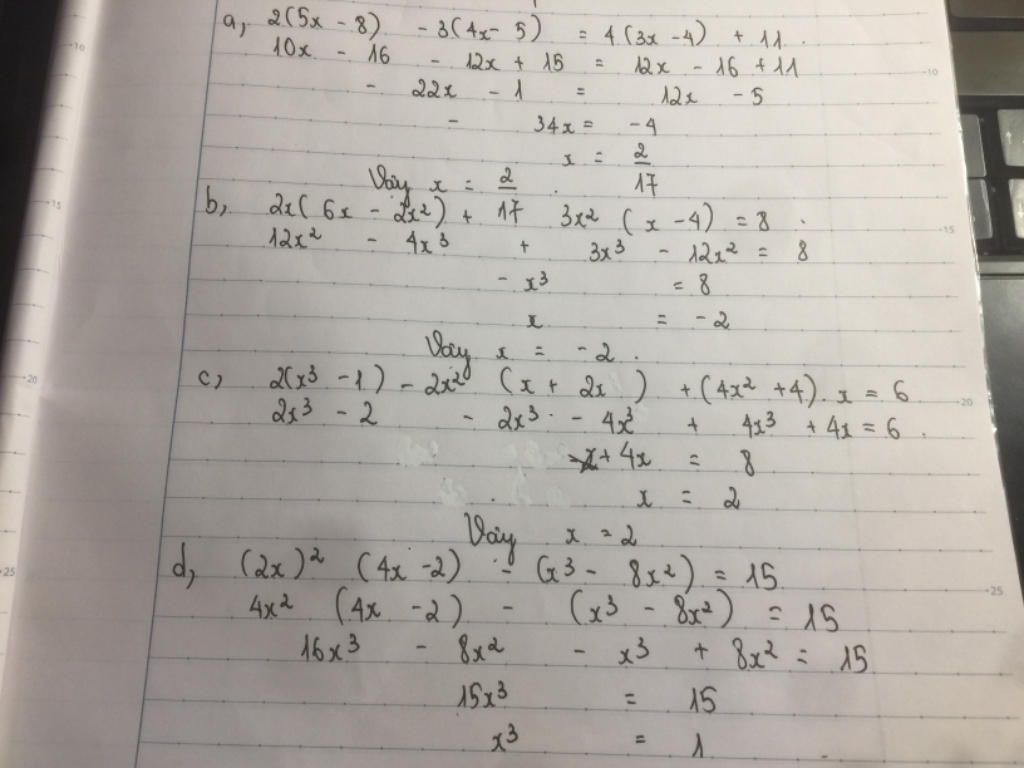 a, 2(5x - 8) - 3(4x - 5) = 4(3x - 4) + 11.
10x - 16 - 12x + 15 = 12x - 16 + 11
- 22x - 1 = 12x - 5
- 34x = -4
x = 2/17
Vậy x = 2/17.
b, 2x(6x - 2x²) + 3x² (x - 4) = 8.
12x² - 4x³ + 3x³ - 12x² = 8
- x³ = 8
x = -2
Vậy x = -2.
c, 2(x³ - 1) - 2x² (x + 2x) + (4x² + 4). x = 6
2x³ - 2 - 2x³ - 4x³ + 4x³ + 4x = 6.
+ 4x = 8
x = 2
Vậy x = 2
d, (2x)² (4x - 2) - (x³ - 8x²) = 15
4x² (4x - 2) - (x³ - 8x²) = 15
16x³ - 8x² - x³ + 8x² = 15
15x³ = 15
x³ = 1